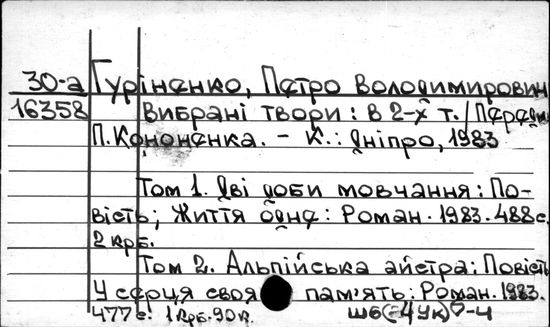 30-а Гуріненко, Петро Володимирович
16358 Вибрані твори: В 2-х т. / Передм.
П. Кононенка. – К.: Дніпро, 1983
Том 1. Дві доби мовчання: По-
вість; Життя одне: Роман. 1983. 488 с.
2 крб.
Том 2. Альпійська айстра: Повість
У серця своя пам'ять: Роман. 1983.
477 с. 1 крб. 90 к. Ш6(=4Ук)7-4